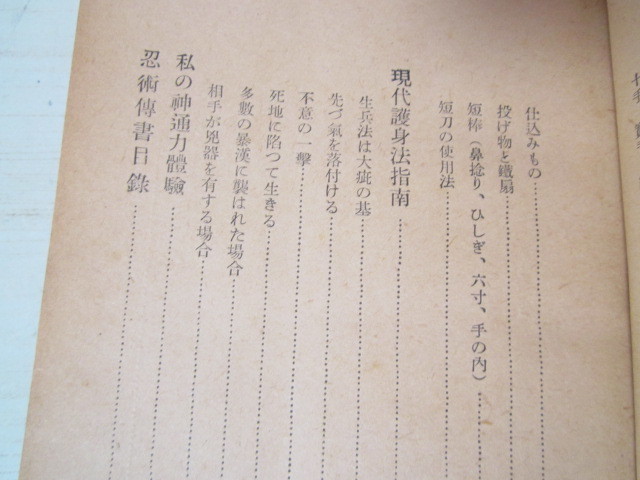 仕込みもの
投げ物と鐵扇
短棒(鼻捻り、ひしぎ、六寸、手の內)
短刀の使用法
現代護身法指南
生兵法は大疵の基
先づ氣を落付ける
不意の一擊
死地に陷つて生きる
多數の暴漢に襲はれた場合
相手が兇器を有する場合
私の神通力體驗
忍術傳書目錄